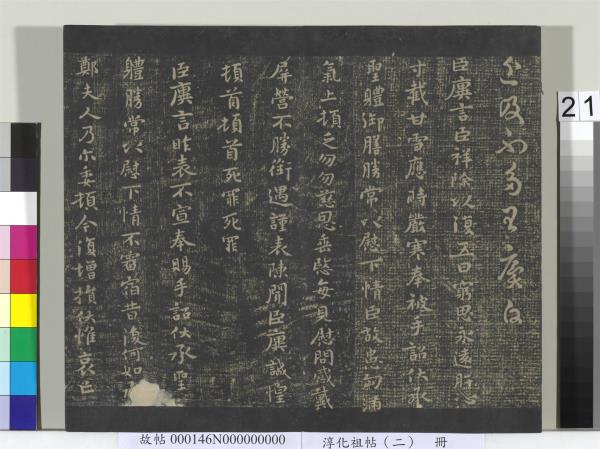 近及不多王廙白
臣廙言臣祥除以復五日窮思永遠肝心
寸截甘雪應時嚴寒奉被手詔伏承
聖體御膳勝常以慰下情臣故患匈滿
氣上頓乏勿勿慈恩垂愍每見慰問感戴
屏營不勝銜遇謹表陳聞臣廙誠惶
頓首頓首死罪死罪
臣廙言昨表不宣奉賜手詔伏承聖
軆勝常以慰下情不審宿昔復何如
鄭夫人乃尒委頓今復增損伏惟哀亡
21
故帖 000146N000000000 淳化祖帖(二) 冊